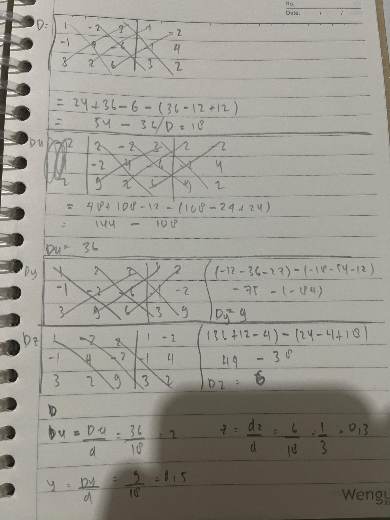 No.
Date.
D =
1 -2 3 1 -2
-1 4
3 2 6 3 2
= 24 + 36 - 6 - (36 - 12 + 12)
= 54 - 36 / D = 18
2 -2 3 2 2
-2 4
9 2 9 2
= 48 + 108 - 12 - (108 - 24 + 24)
= 144 - 108
Du = 36
Dy
(-12 - 36 - 27) - (-18 - 54 - 12)
-1 -2 -1 -2
- 75 - (-84)
3 9 6 3 9
Dy = 9
Dz
1 -2 2 1 -2
(36 + 12 - 4) - (24 - 4 + 18)
-1 4 -2 -1 4
44 - 38
3 2 9 3 2
Dz = 6
D
Du = Du/d = 36/18 = 2
z = dz/d = 6/18 = 1/3 = 0,3
y = Dy/d = 9/18 = 0,5
Weng